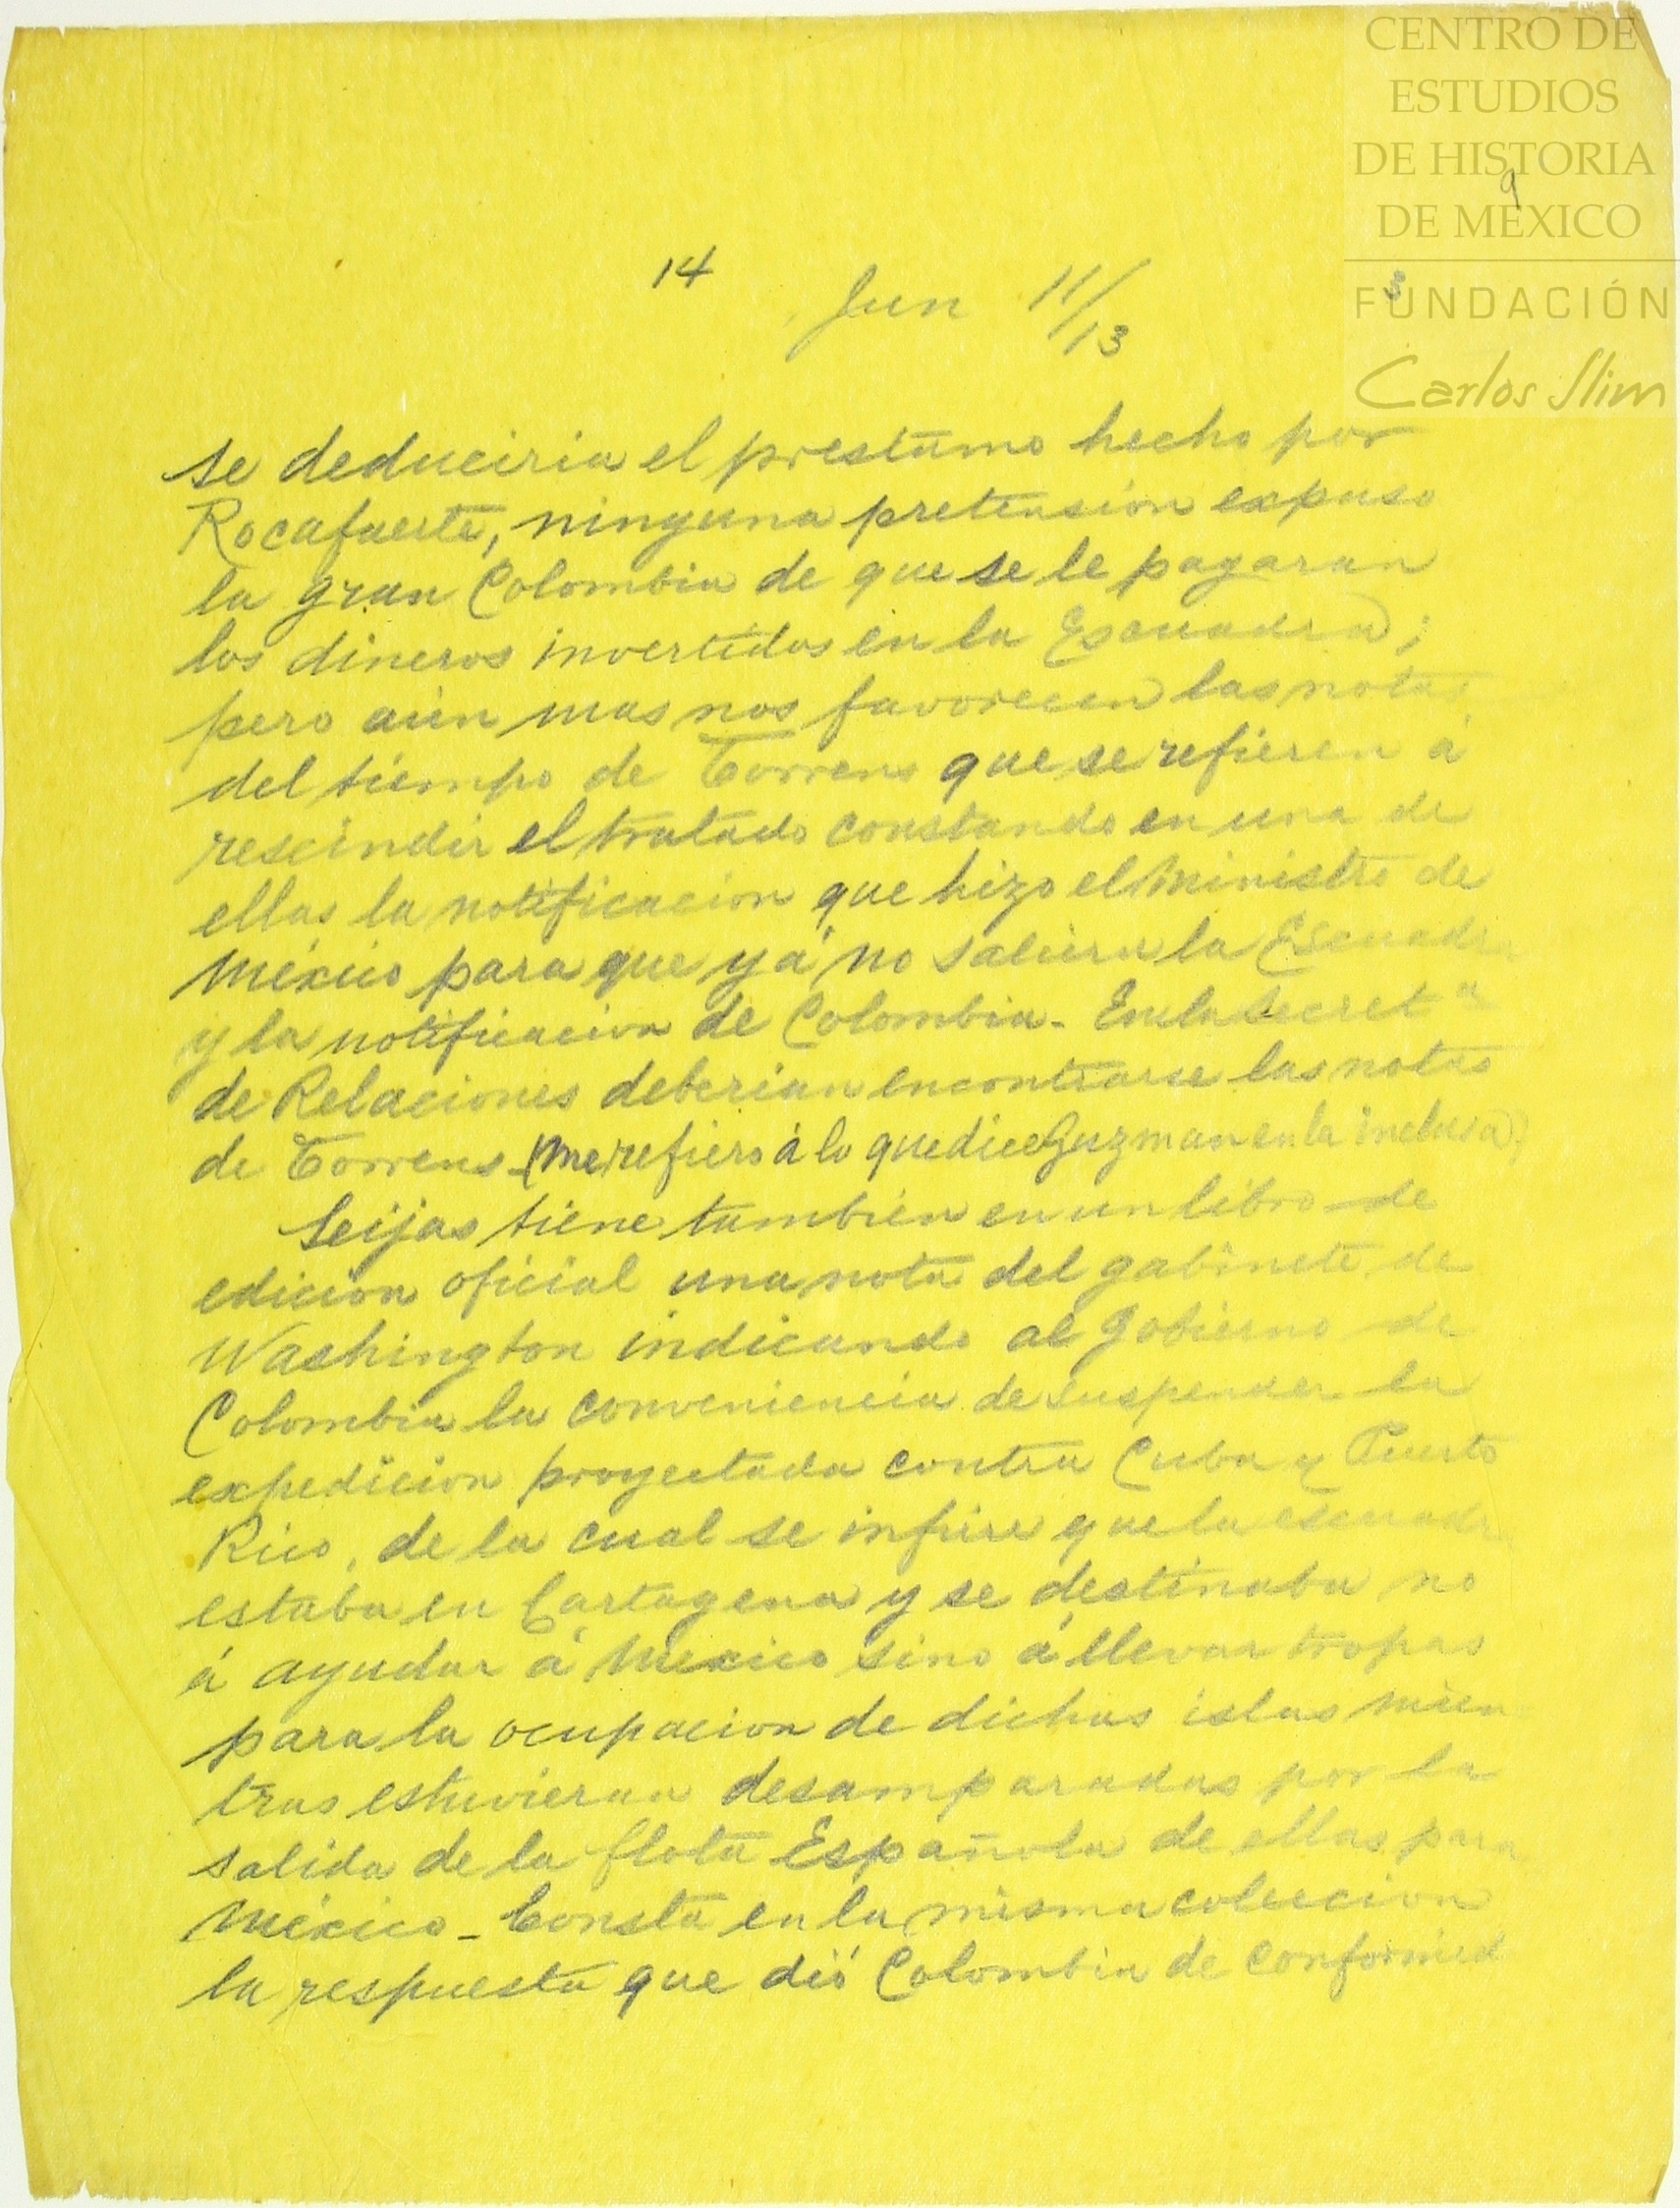 CENTRO DE
ESTUDIOS
DE HISTORIA
DE MÉXICO
FUNDACIÓN
Carlos Slim
9
3
14 Jun 11/13
se deduciria el prestamo hecho por
Rocafuerte, ninguna pretension expuso
la gran Colombia de que se le pagaran
los dineros invertidos en la Escuadra;
pero aún mas nos favorecen las notas
del tiempo de Torrens que se refieren á
rescindir el tratado constando en una de
ellas la notificacion que hizo el Ministro de
México para que yá no saliera la Escuadra
y la notificacion de Colombia - En la Secret.ª
de Relaciones deberian encontrarse las notas
de Torrens - (me refiero á lo que dice Guzman en la inclusa)
Seijas tiene tambien en un libro de
edicion oficial una nota del gabinete de
Washington indicando al Gobierno de
Colombia la conveniencia de suspender la
expedicion proyectada contra Cuba y Puerto
Rico, de la cual se infiere que la escuadra
estaba en Cartagena y se destinaba no
á ayudar á Mexico sino á llevar tropas
para la ocupacion de dichas islas mien
tras estuvieran desamparadas por la
salida de la flota Española de ellas para
México - Consta en la misma coleccion
la respuesta que dió Colombia de conformid